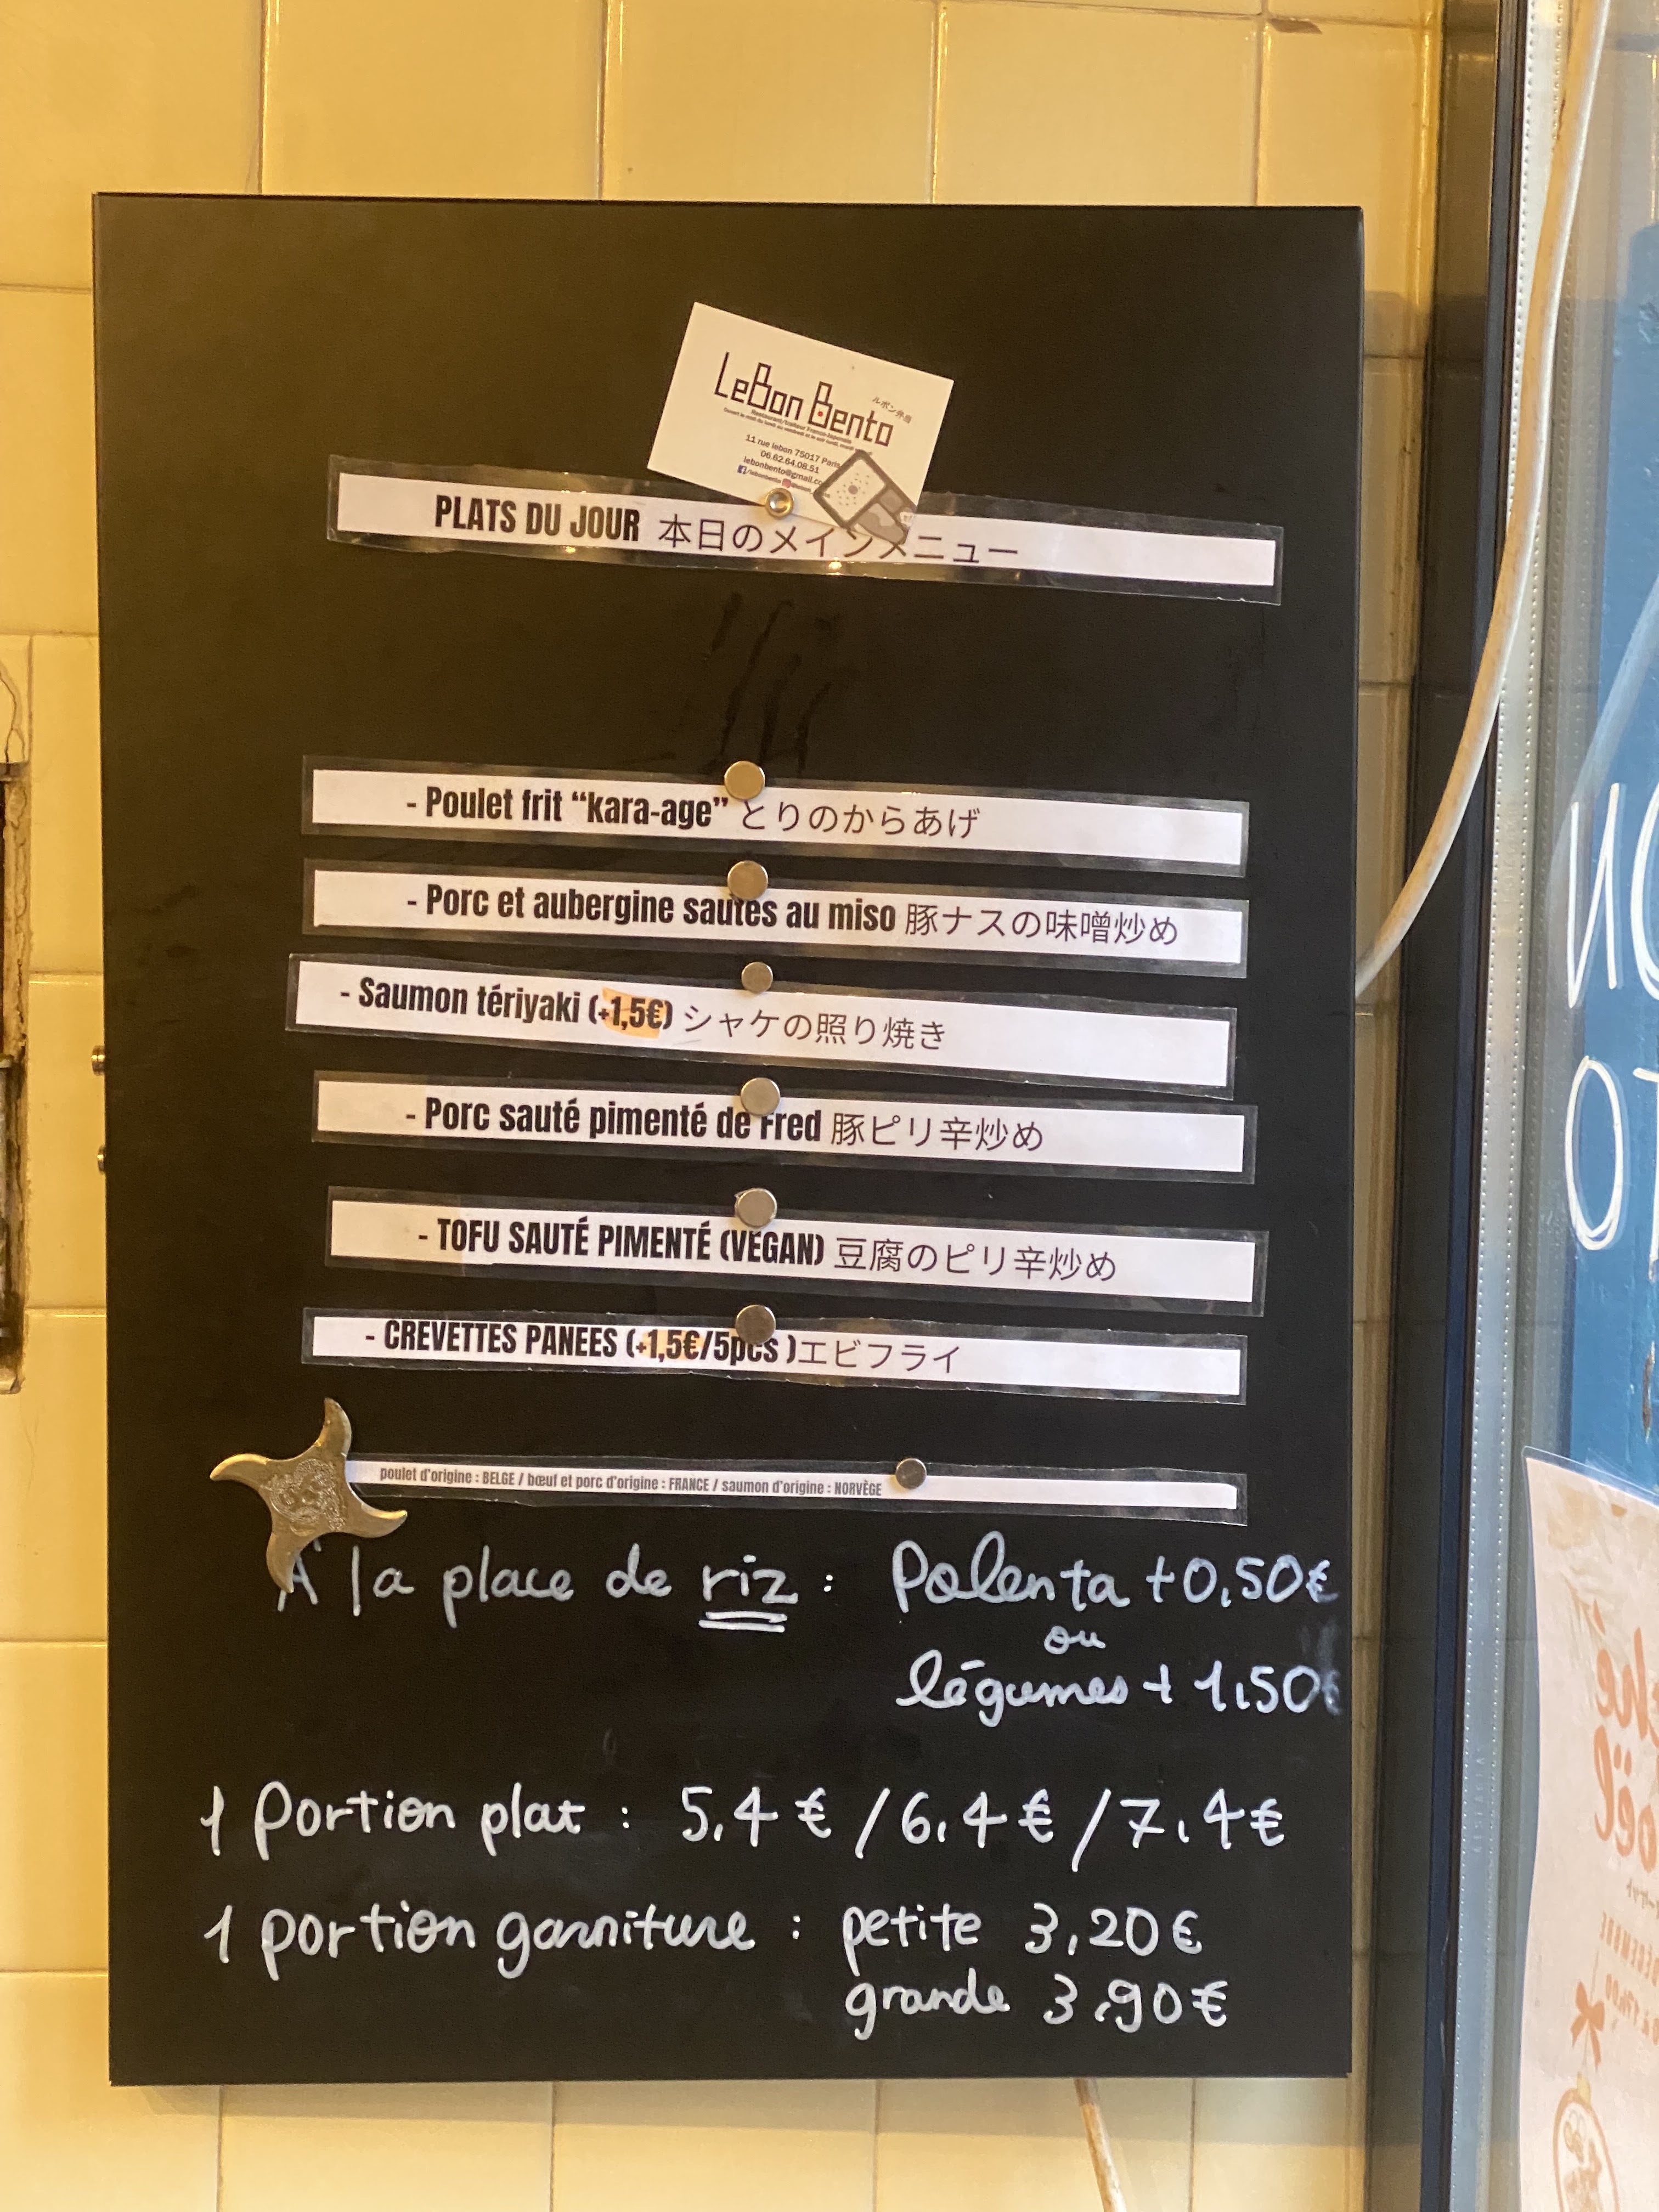 LeBon Bento
ルボン弁当
Restaurant/traiteur Franco-Japonais
11 rue lebon 75017 Paris
06.62.64.08.51
lebonbento@gmail.co
/lebonbento
PLATS DU JOUR 本日のメインメニュー
- Poulet frit “kara-age” とりのからあげ
- Porc et aubergine sautés au miso 豚ナスの味噌炒め
- Saumon tériyaki (+1,5€) シャケの照り焼き
- Porc sauté pimenté de Fred 豚ピリ辛炒め
- TOFU SAUTÉ PIMENTÉ (VÉGAN) 豆腐のピリ辛炒め
- CREVETTES PANEES (+1,5€/5pcs )エビフライ
poulet d'origine : BELGE / bœuf et porc d'origine : FRANCE / saumon d'origine : NORVÈGE
À la place de riz : Polenta +0,50€
ou
légumes + 1,50€
1 portion plat : 5,4 € / 6,4 € / 7,4 €
1 portion garniture : petite 3,20€
grande 3,90€